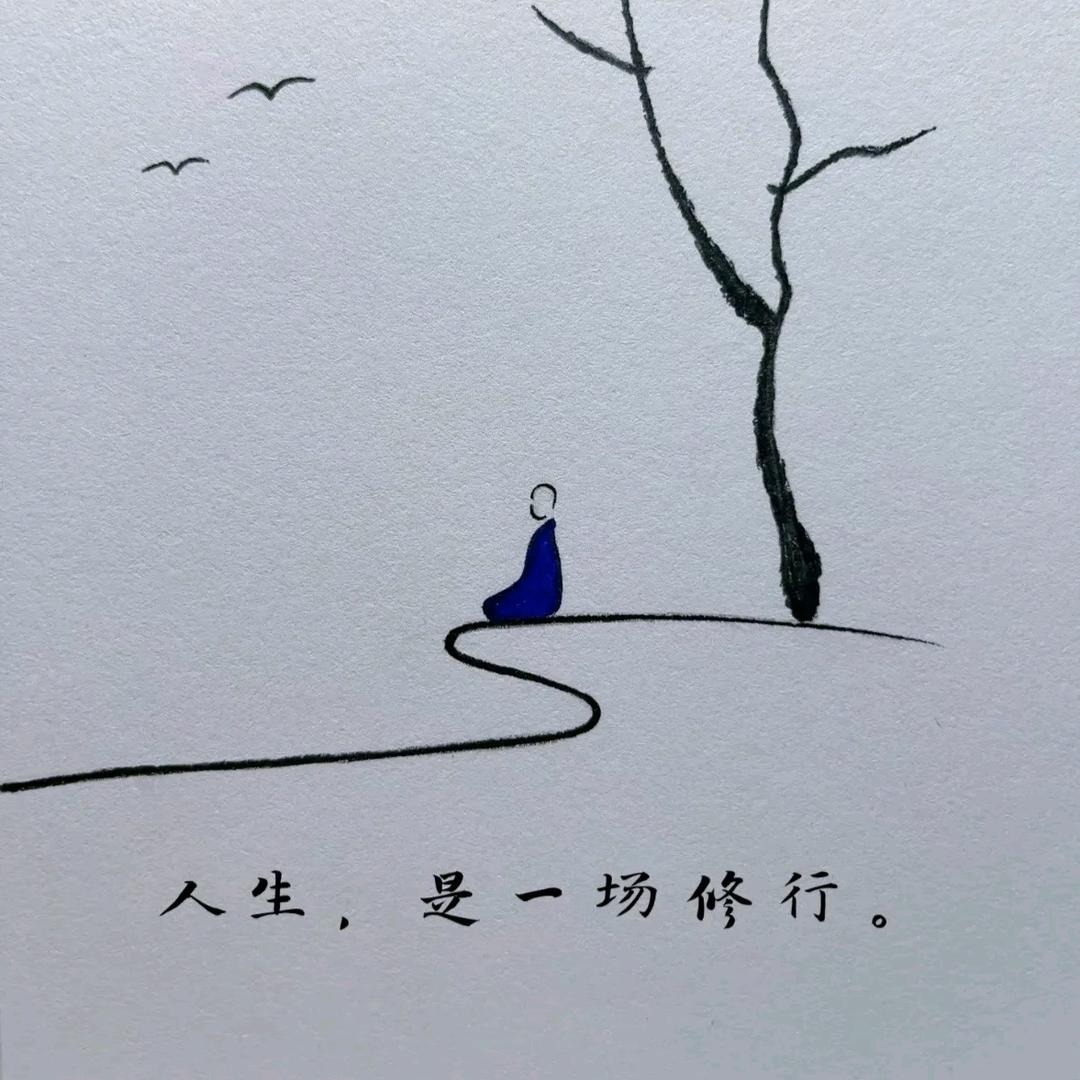 人生，是一场修行。